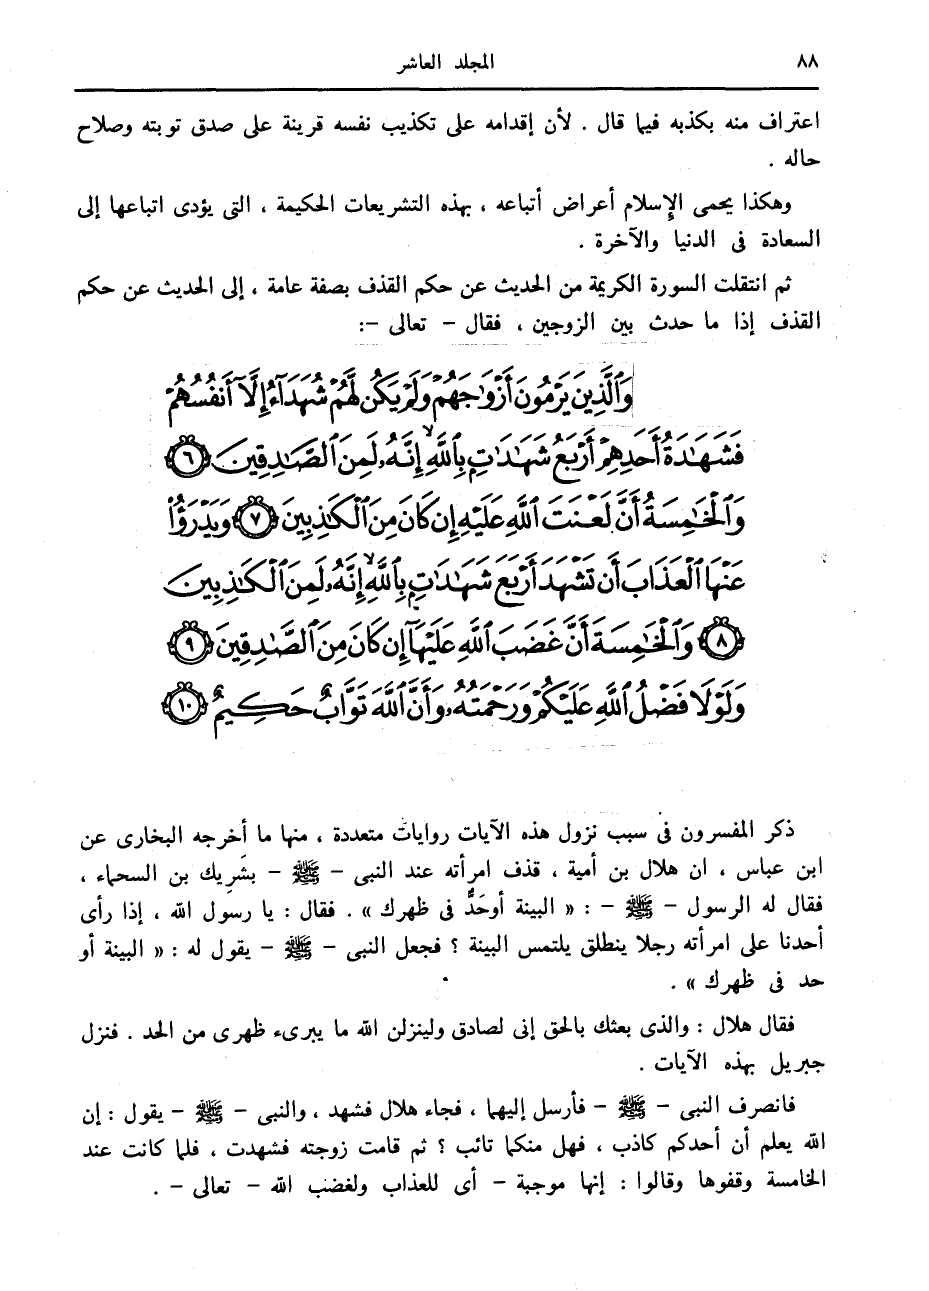 ٨٨
المجلد العاشر
اعتراف منه بكذبه فيما قال . لأن إقدامه على تكذيب نفسه قرينة على صدق توبته وصلاح
حاله .
وهكذا يحمى الإسلام أعراض أتباعه ، بهذه التشريعات الحكيمة ، التى يؤدى اتباعها إلى
السعادة فى الدنيا والآخرة .
ثم انتقلت السورة الكريمة من الحديث عن حكم القذف بصفة عامة ، إلى الحديث عن حكم
القذف إذا ما حدث بين الزوجين ، فقال - تعالى -:
وَٱلَّذِينَ يَرْمُونَ أَزْوَٰجَهُمْ وَلَمْ يَكُن لَّهُمْ شُهَدَآءُ إِلَّآ أَنفُسُهُمْ
فَشَهَٰدَةُ أَحَدِهِمْ أَرْبَعُ شَهَٰدَٰتٍۭ بِٱللَّهِ ۙ إِنَّهُۥ لَمِنَ ٱلصَّٰدِقِينَ ٦
وَٱلْخَٰمِسَةُ أَنَّ لَعْنَتَ ٱللَّهِ عَلَيْهِ إِن كَانَ مِنَ ٱلْكَٰذِبِينَ ٧ وَيَدْرَؤُا۟
عَنْهَا ٱلْعَذَابَ أَن تَشْهَدَ أَرْبَعَ شَهَٰدَٰتٍۭ بِٱللَّهِ ۙ إِنَّهُۥ لَمِنَ ٱلْكَٰذِبِينَ
٨ وَٱلْخَٰمِسَةَ أَنَّ غَضَبَ ٱللَّهِ عَلَيْهَآ إِن كَانَ مِنَ ٱلصَّٰدِقِينَ ٩
وَلَوْلَا فَضْلُ ٱللَّهِ عَلَيْكُمْ وَرَحْمَتُهُۥ وَأَنَّ ٱللَّهَ تَوَّابٌ حَكِيمٌ ١٠
ذكر المفسرون فى سبب نزول هذه الآيات روايات متعددة ، منها ما أخرجه البخارى عن
ابن عباس ، ان هلال بن أمية ، قذف امرأته عند النبى - ﷺ - بشَرِيك بن السحماء ،
فقال له الرسول - ﷺ - : « البينة أوحَدٌّ فى ظهرك » . فقال : يا رسول الله ، إذا رأى
أحدنا على امرأته رجلا ينطلق يلتمس البينة ؟ فجعل النبى - ﷺ - يقول له : « البينة أو
حد فى ظهرك » .
فقال هلال : والذى بعثك بالحق إنى لصادق ولينزلن الله ما يبرىء ظهرى من الحد . فنزل
جبريل بهذه الآيات .
فانصرف النبى - ﷺ - فأرسل إليهما ، فجاء هلال فشهد ، والنبى - ﷺ - يقول : إن
الله يعلم أن أحدكم كاذب ، فهل منكما تائب ؟ ثم قامت زوجته فشهدت ، فلما كانت عند
الخامسة وقفوها وقالوا : إنها موجبة - أى للعذاب ولغضب الله - تعالى - .